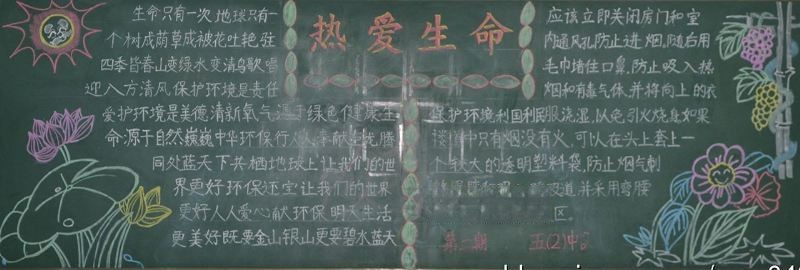 热爱生命
生命只有一次地球只有一
个树成荫草成被花吐艳驻
四季皆春山变绿水变清鸟歌唱
迎入方清风保护环境是责任
爱护环境是美德清新氧气源于绿色健康生
命源于自然巍巍中华环保行
同处蓝天下共栖地球上让我们的世
界更好环保还宝让我们的世界
更好人人爱心献环保明天生活
更美好既要金山银山更要碧水蓝天
应该立即关闭房门和室
内通风孔防止进烟,随后用
毛巾堵住口鼻,防止吸入热
烟和有毒气体,并将向上的衣
保护环境利国利民服浇湿,以免引火烧身如果
楼道中只有烟没有火,可以在头上套上一
个较大的透明塑料袋,防止烟气刺
道并采用弯腰
区
第二期 五(2)中